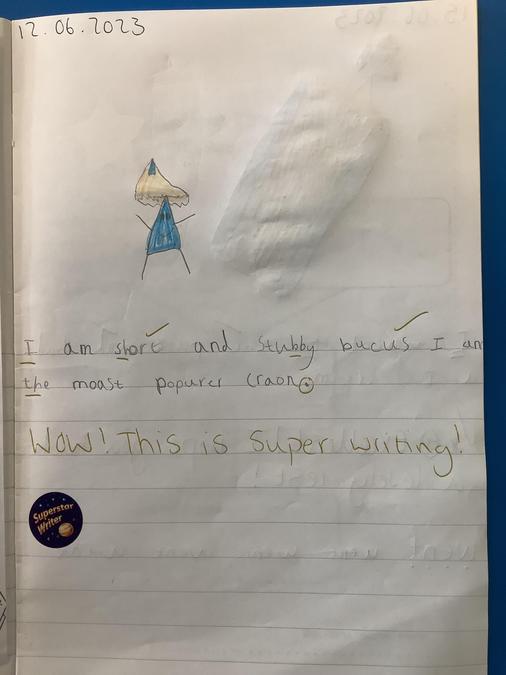 12.06.2023
I am short and stubby bucus I am
the moast popurer Craon.
Wow! This is super writing!
Superstar
Writer